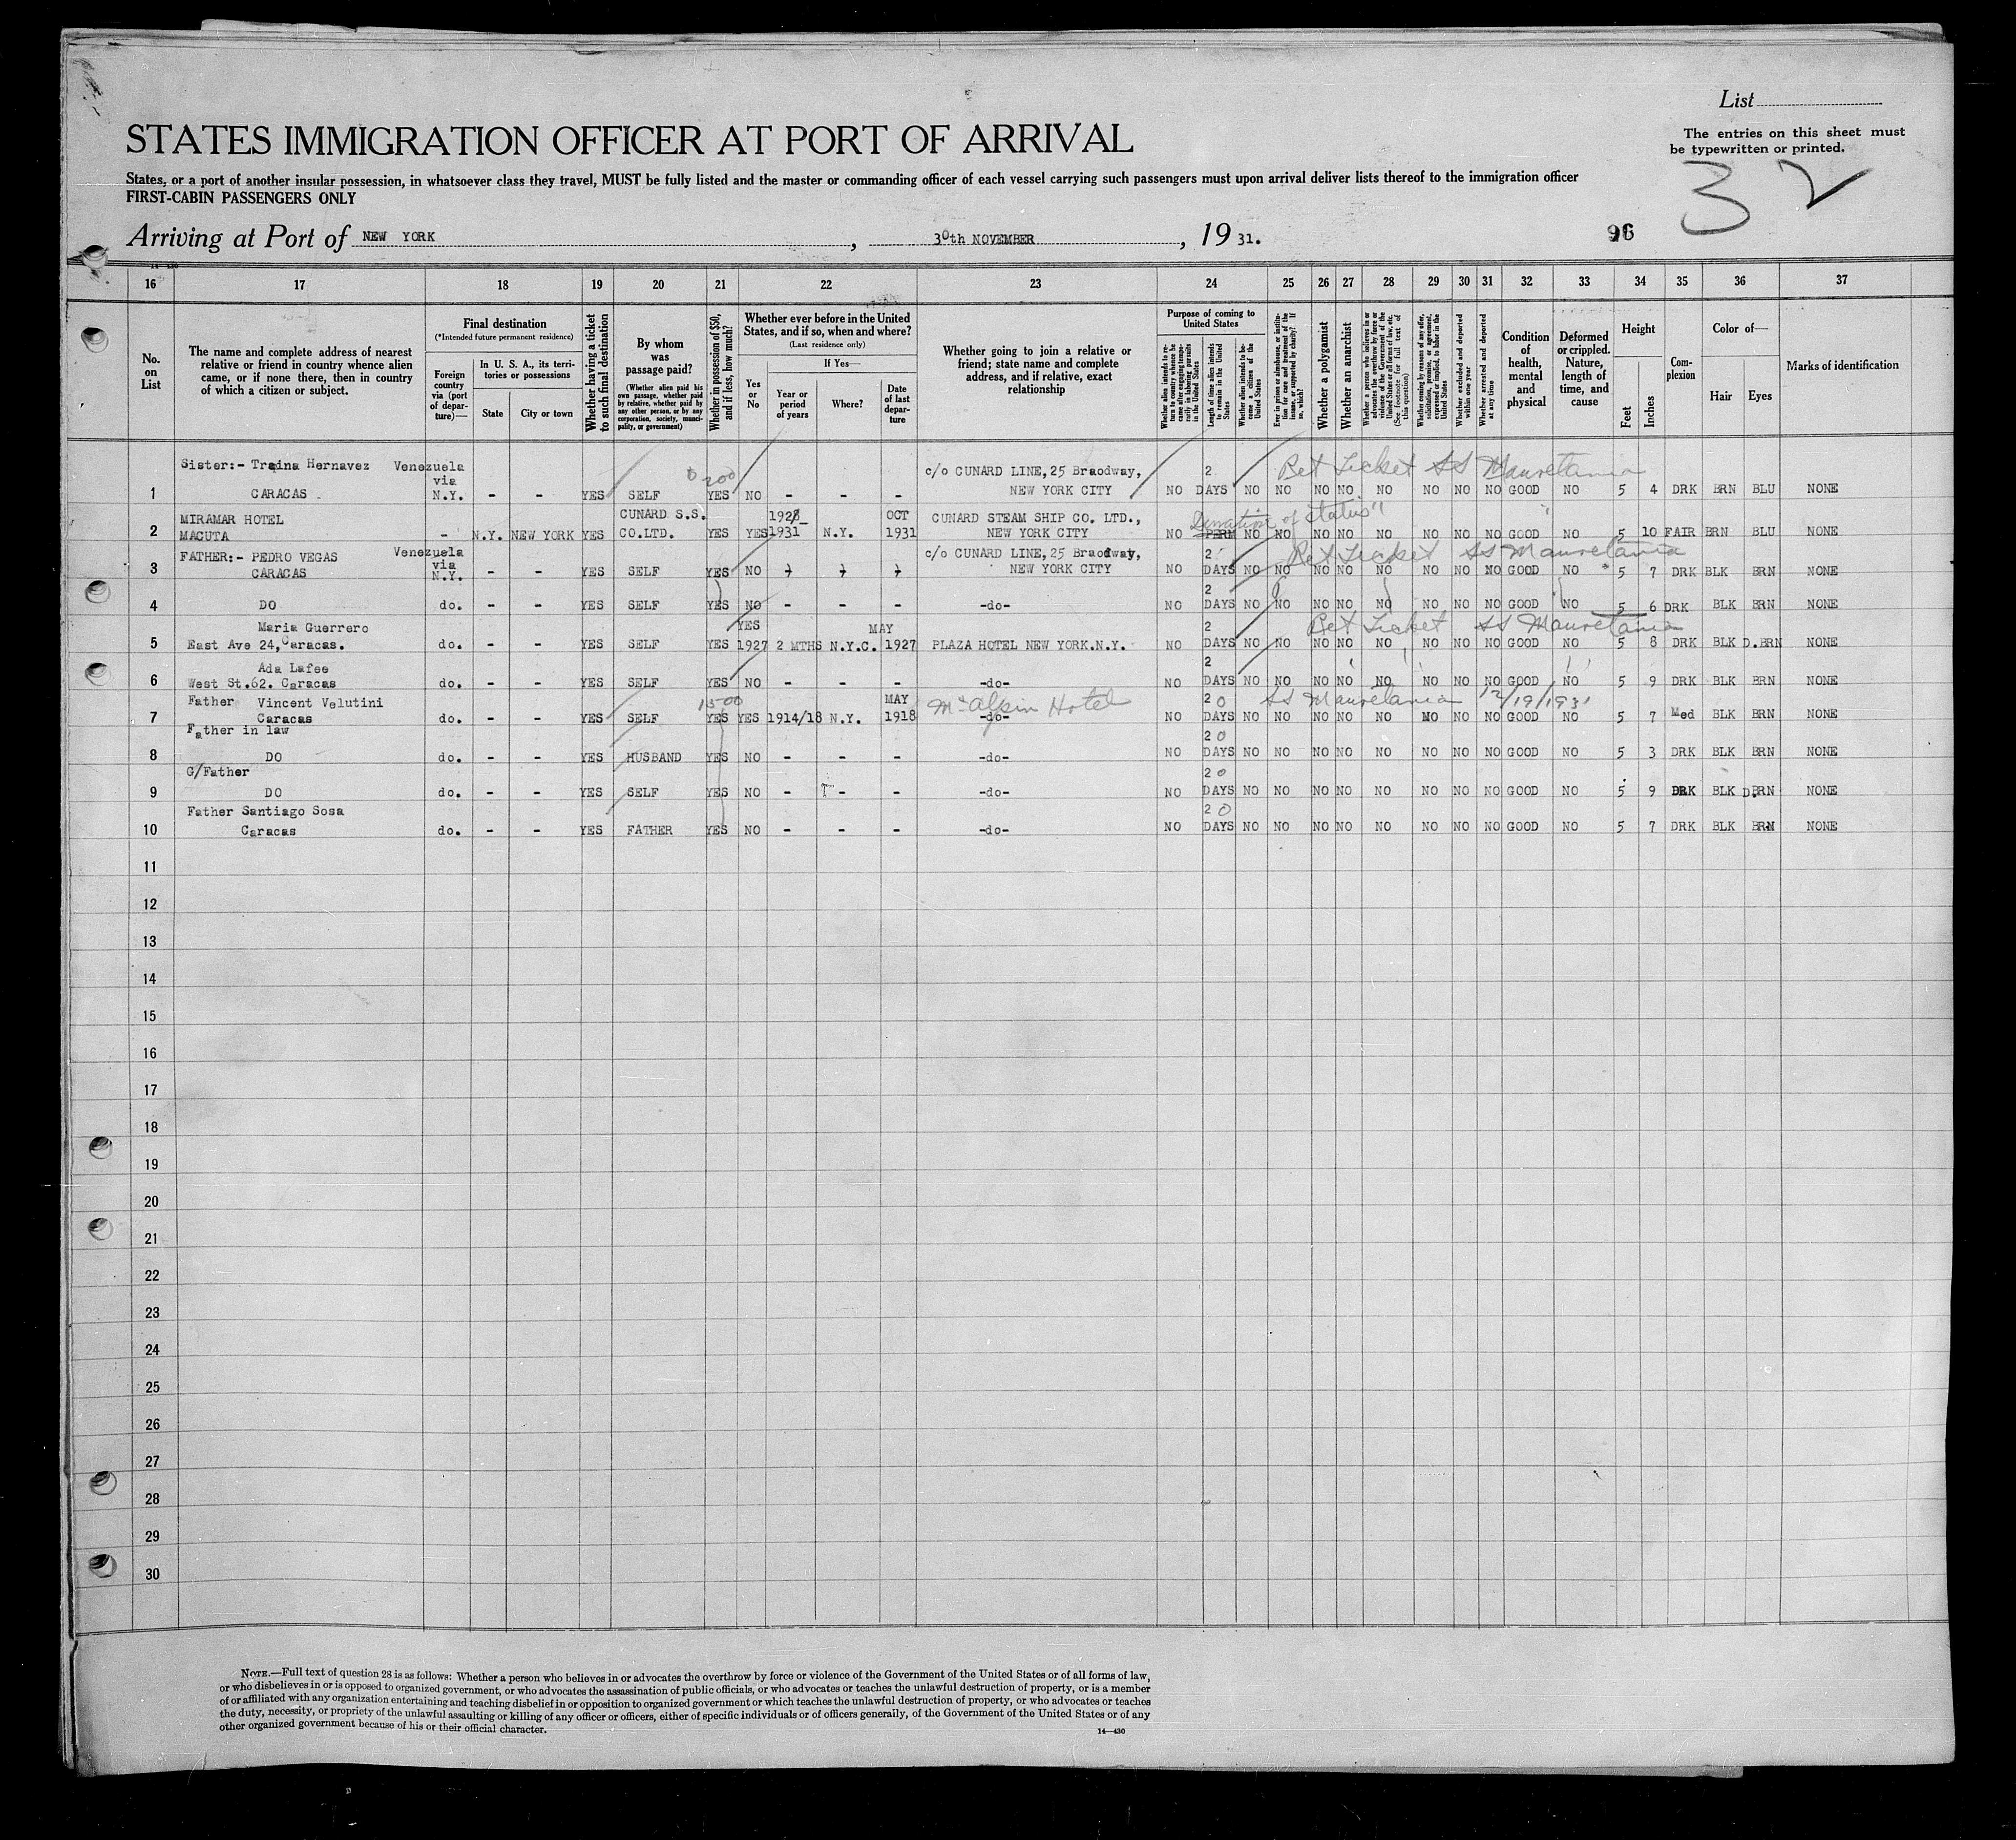 List
STATES IMMIGRATION OFFICER AT PORT OF ARRIVAL
The entries on this sheet must
be typewritten or printed.
States, or a port of another insular possession, in whatsoever class they travel, MUST be fully listed and the master or commanding officer of each vessel carrying such passengers must upon arrival deliver lists thereof to the immigration officer
FIRST-CABIN PASSENGERS ONLY
32
Arriving at Port of NEW YORK, 30th NOVEMBER, 1931.
96
16 17 18 19 20 21 22 23 24 25 26 27 28 29 30 31 32 33 34 35 36 37
No. on List
The name and complete address of nearest relative or friend in country whence alien came, or if none there, then in country of which a citizen or subject.
Final destination
(*Intended future permanent residence)
Foreign country via (port of departure)—
In U. S. A., its territories or possessions
State
City or town
Whether having a ticket to such final destination
By whom was passage paid?
(Whether alien paid his own passage, whether paid by relative, whether paid by any other person, or by any corporation, society, municipality, or government)
Whether in possession of $50, and if less, how much?
Whether ever before in the United States, and if so, when and where?
(Last residence only)
Yes or No
If Yes—
Year or period of years
Where?
Date of last departure
Whether going to join a relative or friend; state name and complete address, and if relative, exact relationship
Purpose of coming to United States
Whether alien intends to return to country whence he came after engaging temporarily in laboring pursuits in the United States
Length of time alien intends to remain in the United States
Whether alien intends to become a citizen of the United States
Ever in prison or almshouse, or institution for care and treatment of the insane, or supported by charity? If so, which?
Whether a polygamist
Whether an anarchist
Whether a person who believes in or advocates the overthrow by force or violence of the Government of the United States or all forms of law, etc. (See footnote for full text of this question)
Whether coming by reasons of any offer, solicitation, promise, or agreement, expressed or implied, to labor in the United States
Whether excluded and deported within one year
Whether arrested and deported at any time
Condition of health, mental and physical
Deformed or crippled. Nature, length of time, and cause
Height
Feet
Inches
Complexion
Color of—
Hair
Eyes
Marks of identification
Sister:- Traina Hernavez Venezuela c/o CUNARD LINE, 25 Braodway, 2 Ret Ticket SS Mauretania
via 200
1 CARACAS N.Y. - - YES SELF YES NO - - - NEW YORK CITY NO DAYS NO NO NO NO NO NO NO NO GOOD NO 5 4 DRK BRN BLU NONE
MIRAMAR HOTEL CUNARD S.S. 1928 OCT CUNARD STEAM SHIP CO. LTD., Duration of status"
2 MACUTA - N.Y. NEW YORK YES CO.LTD. YES YES 1931 N.Y. 1931 NEW YORK CITY NO PERM NO NO NO NO NO NO NO NO GOOD NO 5 10 FAIR BRN BLU NONE
FATHER:- PEDRO VEGAS Venezuela c/o CUNARD LINE, 25 Braodway, 2 Ret Ticket SS Mauretania
via
3 CARACAS N.Y. - - YES SELF YES NO NEW YORK CITY NO DAYS NO NO NO NO NO NO NO NO GOOD NO 5 7 DRK BLK BRN NONE
2
4 DO do. - - YES SELF YES NO - - - -do- NO DAYS NO NO NO NO NO NO NO NO GOOD NO 5 6 DRK BLK BRN NONE
Maria Guerrero YES MAY 2 Ret Ticket SS Mauretania
5 East Ave 24, Caracas. do. - - YES SELF YES 1927 2 MTHS N.Y.C. 1927 PLAZA HOTEL NEW YORK.N.Y. NO DAYS NO NO NO NO NO NO NO NO GOOD NO 5 8 DRK BLK D.BRN NONE
Ada Lafee 2
6 West St.62. Caracas do. - - YES SELF YES NO - - - -do- NO DAYS NO NO NO NO NO NO NO NO GOOD NO 5 9 DRK BLK BRN NONE
Father Vincent Velutini 1500 MAY McAlpin Hotel 20 SS Mauretania 12/19/1931
7 Caracas do. - - YES SELF YES YES 1914/18 N.Y. 1918 -do- NO DAYS NO NO NO NO NO NO NO NO GOOD NO 5 7 Med BLK BRN NONE
Father in law 20
8 DO do. - - YES HUSBAND YES NO - - - -do- NO DAYS NO NO NO NO NO NO NO NO GOOD NO 5 3 DRK BLK BRN NONE
G/Father 20
9 DO do. - - YES SELF YES NO - - - -do- NO DAYS NO NO NO NO NO NO NO NO GOOD NO 5 9 DRK BLK D.BRN NONE
Father Santiago Sosa 20
10 Caracas do. - - YES FATHER YES NO - - - -do- NO DAYS NO NO NO NO NO NO NO NO GOOD NO 5 7 DRK BLK BRN NONE
11
12
13
14
15
16
17
18
19
20
21
22
23
24
25
26
27
28
29
30
NOTE.—Full text of question 28 is as follows: Whether a person who believes in or advocates the overthrow by force or violence of the Government of the United States or of all forms of law,
or who disbelieves in or is opposed to organized government, or who advocates the assassination of public officials, or who advocates or teaches the unlawful destruction of property, or is a member
of or affiliated with any organization entertaining and teaching disbelief in or opposition to organized government or which teaches the unlawful destruction of property, or who advocates or teaches
the duty, necessity, or propriety of the unlawful assaulting or killing of any officer or officers, either of specific individuals or of officers generally, of the Government of the United States or of any
other organized government because of his or their official character.
14—430